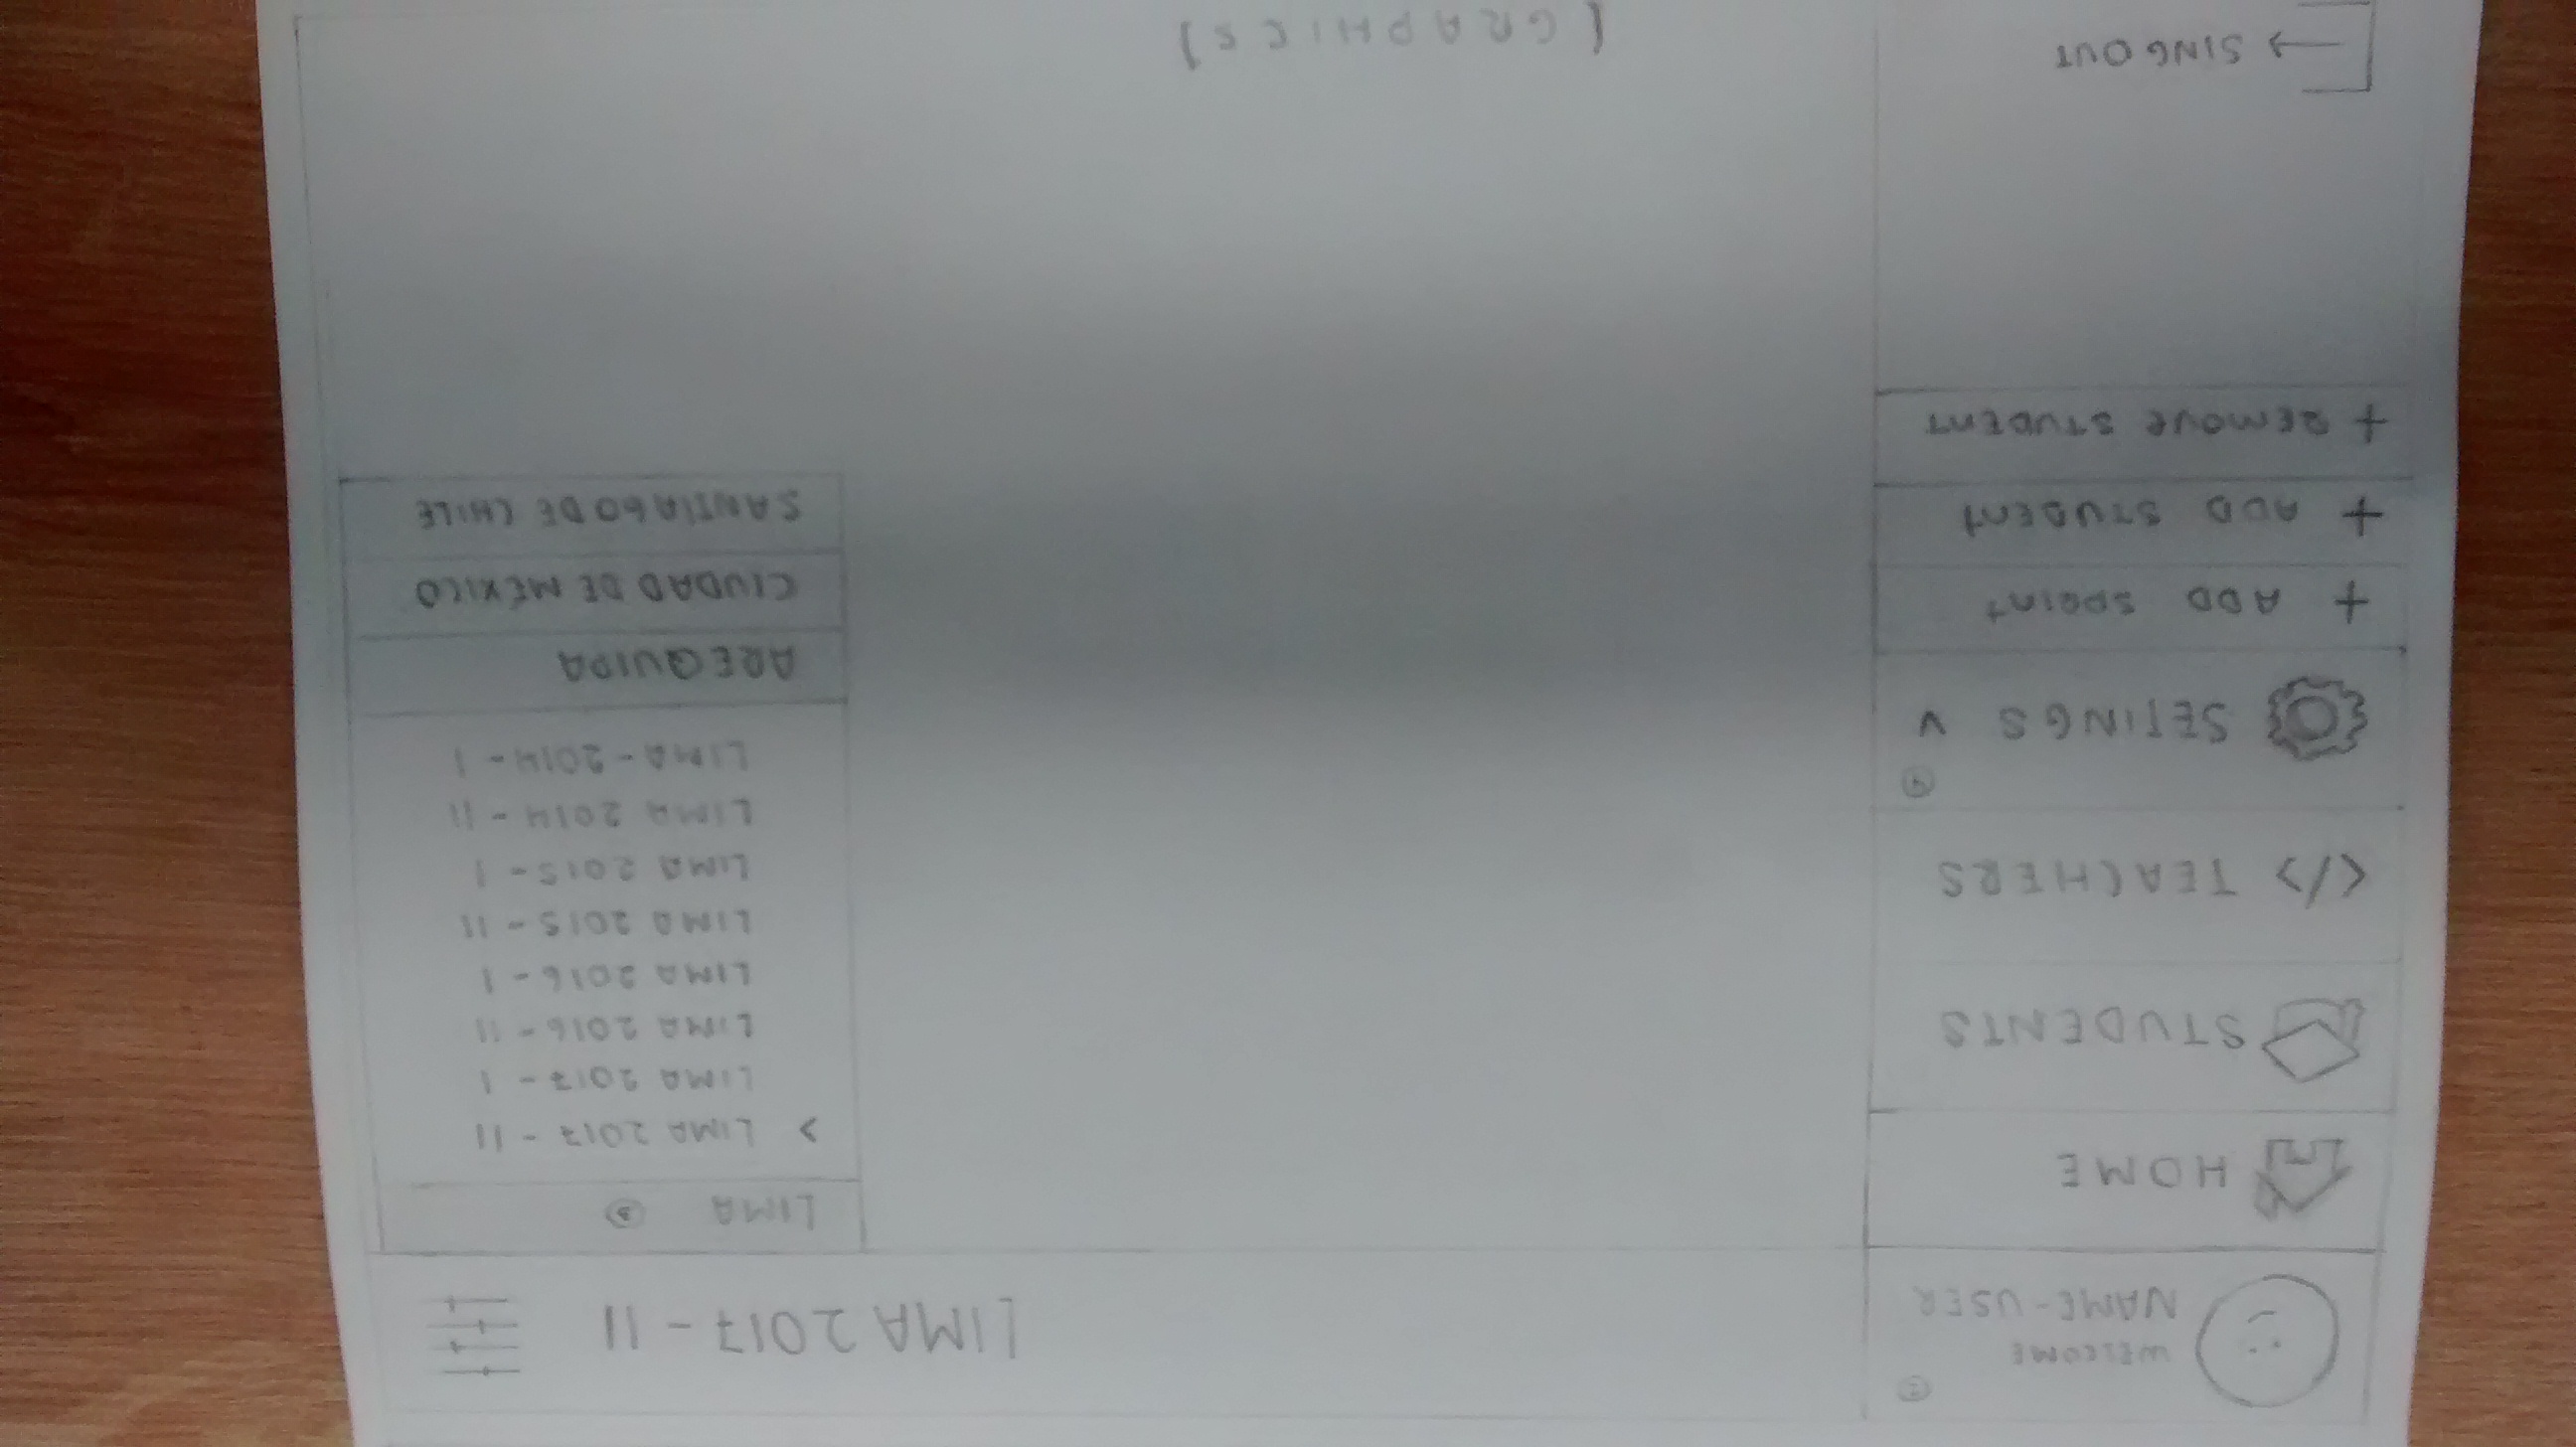 ②
WELCOME
NAME-USER
HOME
STUDENTS
</> TEACHERS
④
SETINGS V
+ ADD SPRINT
+ ADD STUDENT
+ REMOVE STUDENT
SING OUT
LIMA 2017 - II
LIMA ③
> LIMA 2017 - II
LIMA 2017 - I
LIMA 2016 - II
LIMA 2016 - I
LIMA 2015 - II
LIMA 2015 - I
LIMA 2014 - II
LIMA - 2014 - I
AREQUIPA
CIUDAD DE MÉXICO
SANTIAGO DE CHILE
[GRAPHICS]